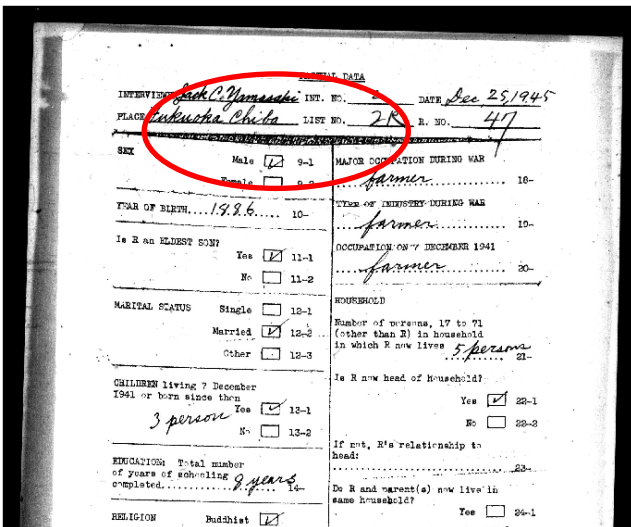 FACTUAL DATA
INTERVIEWER Jack C. Yamasaki INT. NO. DATE Dec 25, 1945
PLACE Fukuoka Chiba LIST NO. 2R R. NO. 47
SEX
Male ☑ 9-1
Female ☐ 9-2
YEAR OF BIRTH....1886..... 10-
Is R an ELDEST SON?
Yes ☑ 11-1
No ☐ 11-2
MARITAL STATUS Single ☐ 12-1
Married ☑ 12-2
Other ☐ 12-3
CHILDREN living 7 December
1941 or born since then
3 person Yes ☑ 13-1
No ☐ 13-2
EDUCATION: Total number
of years of schooling
completed......8 years 14-
RELIGION Buddhist ☑
MAJOR OCCUPATION DURING WAR
....farmer............ 18-
TYPE OF INDUSTRY DURING WAR
....farmer............ 19-
OCCUPATION ON 7 DECEMBER 1941
....farmer............ 20-
HOUSEHOLD
Number of persons, 17 to 71
(other than R) in household
in which R now lives 5 persons
21-
Is R now head of Household?
Yes ☑ 22-1
No ☐ 22-2
If not, R's relationship to
head:
........................23-
Do R and parent(s) now live in
same household?
Yes ☐ 24-1